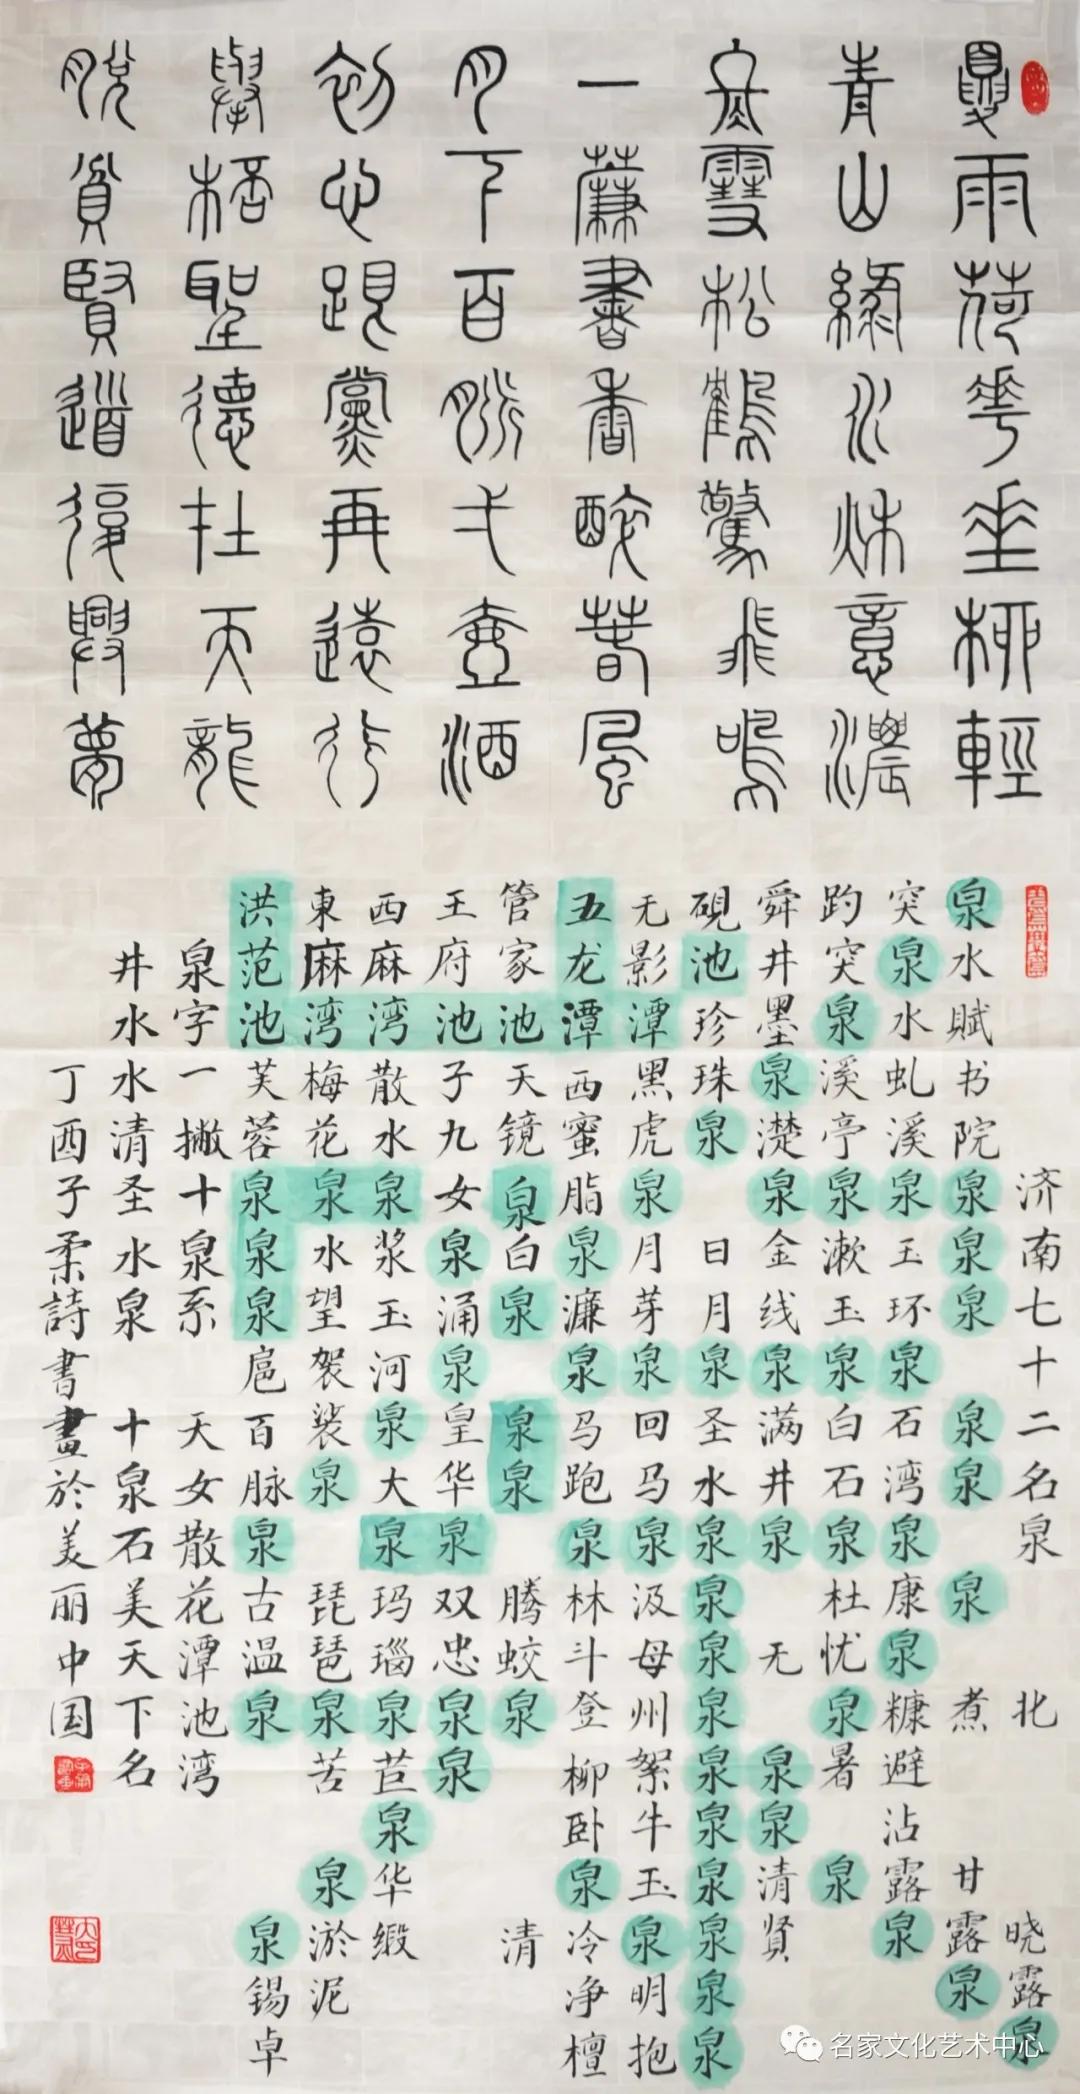 夏雨荷花垂柳輕
青山綠水秋意濃
冬雪松鶴驚飛鳴
一簾書香醉春風
月下百 壺酒
初心跟黨再遠行
舉桮聖德 天龍
脫貧賢道復興夢
济南七十二名泉 北 晓露泉
泉水賦书院泉泉泉 泉泉 泉 煮 甘露泉
突泉水虬溪泉玉环泉石湾泉康泉糠避沾露泉
趵突泉溪亭泉漱玉泉白石泉杜忧泉暑 泉
舜井墨泉濋泉金线泉满井泉 无 泉泉清贤
砚池珍珠泉 日月泉圣水泉泉泉泉泉泉泉泉泉泉
无影潭黑虎泉月芽泉回马泉汲母州絮牛玉泉明抱
五龙潭西蜜脂泉濂泉马跑泉林斗登柳卧泉冷净檀
管家池天镜泉白泉 泉泉 腾蛟泉 清
王府池子九女泉涌泉皇华泉双忠泉泉
西麻湾散水泉浆玉河泉大泉玛瑙泉苣泉华缎
東麻湾梅花泉水望袈裟泉 琵琶泉苦 泉淤泥
洪范池芙蓉泉泉泉扈百脉泉古温泉 泉锡卓
泉字一撇十泉系 天女散花潭池湾
井水水清圣水泉 十泉石美天下名
丁酉子柔詩書畫於美丽中国
名家文化艺术中心